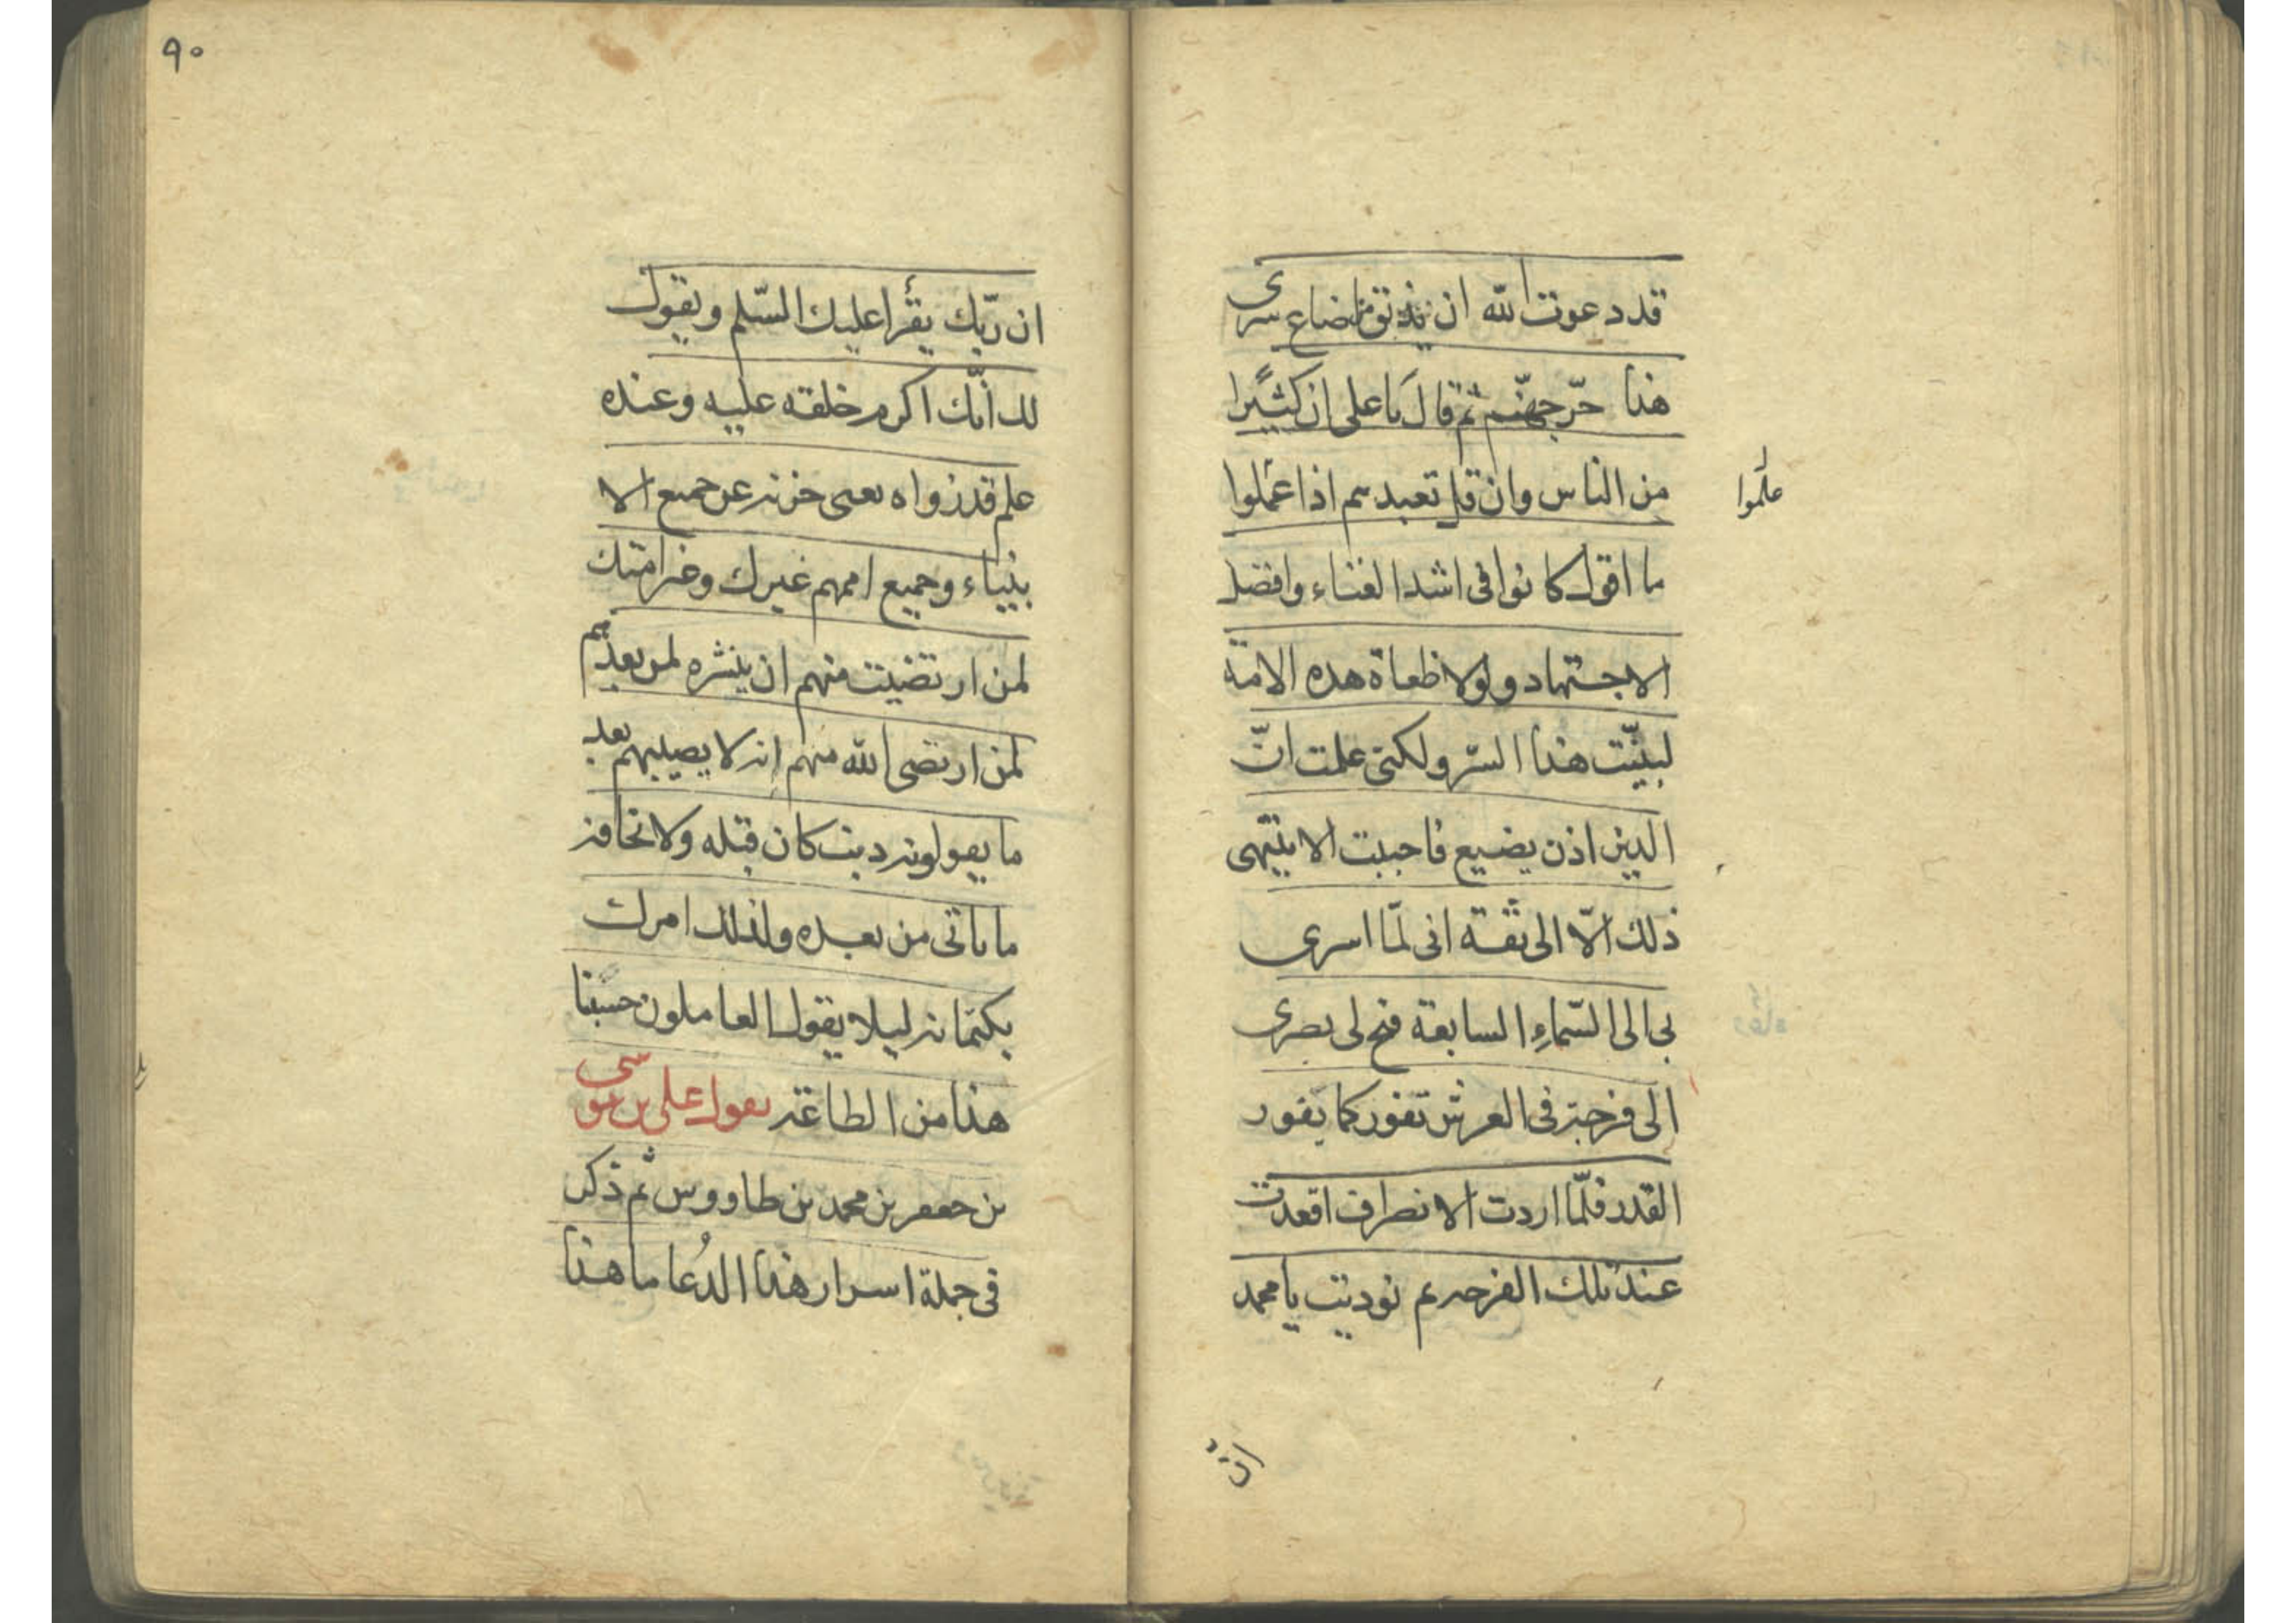 قد دعوت الله ان يذيق من اضاع سرى
هذا حرّ جهنّم ثم قال يا على ان كثيرا
من الناس وان قل تعبدهم اذا عملوا
علموا
ما اقول كانوا فى اشد العناء وافضل
الاجتهاد ولولا طغاة هذه الامّة
لبيّنت هذا السّر ولكنى علمت انّ
الدين اذن يضيع فاحببت الا ينتهى
ذلك الّا الى ثقة انى لمّا اسرى
بى الى السّماءِ السابعة فتح لى بصرى
الى فرجة فى العرش تفور كما يفور
القدر فلمّا اردت الانصراف اقعدت
عند تلك الفرجه ثم نوديت يا محمد
انّ
٩٠
ان ربّك يقرأ عليك السّلم ويقول
لك انّك اكرم خلقه عليه وعنده
علم قد زواه يعنى خزنه عن جميع الا
نبياء وجميع اممهم غيرك وغير امتك
لمن ارتضيت منهم ان ينشره لمن بعدهم
لمن ارتضى الله منهم انه لا يصيبهم بعد
ما يقولونه ذنب كان قبله ولا مخافة
ما ياتى من بعده ولذلك امرك
بكتمانه ليلا يقول العاملون حسبنا
هذا من الطاعة يقول على بن موسى
بن جعفر بن محمد بن طاووس ثم ذكر
فى جملة اسرار هذا الدُعا ما هذا